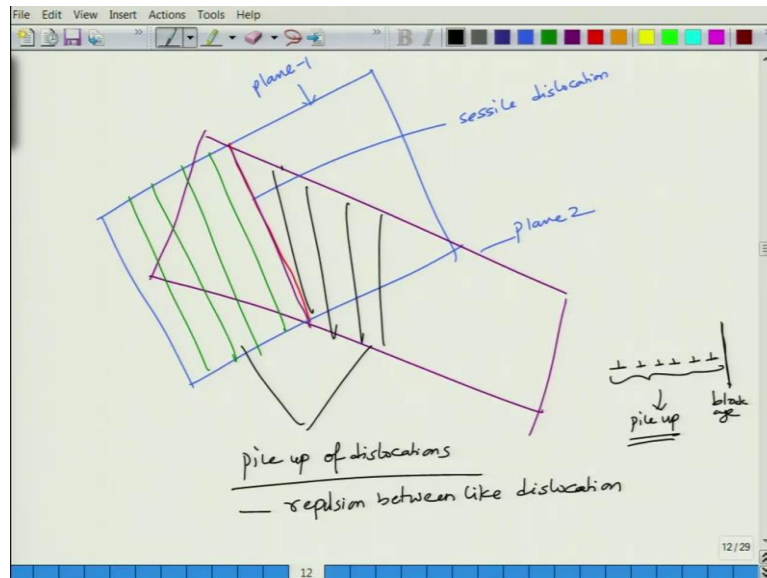 File Edit View Insert Actions Tools Help
B I
plane-1
sessile dislocation
plane 2
block
age
pile up
pile up of dislocations
— repulsion between like dislocation
12/29
12